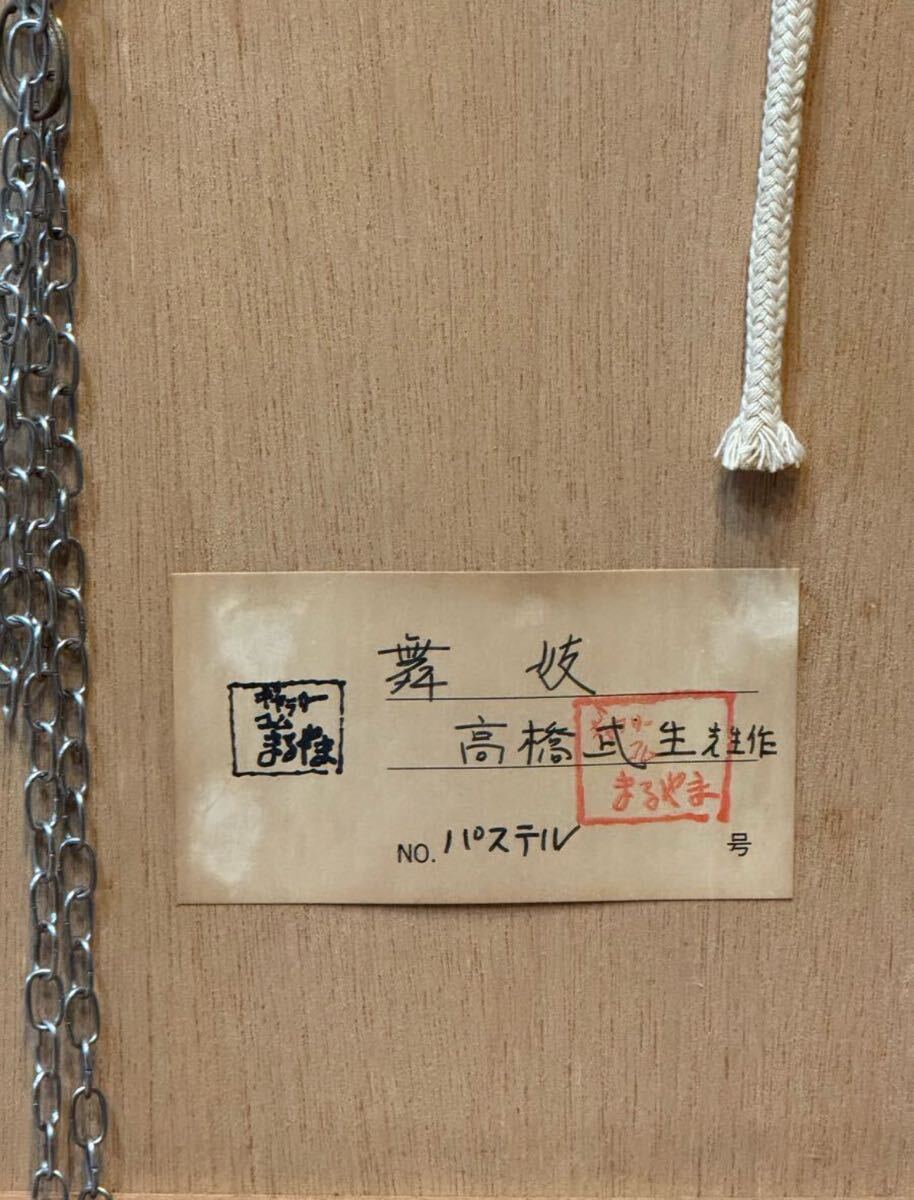 舞妓
高橋武生先生作
NO. パステル 号
ギャラリー
コム
まるやま
ギャラリー
コム
まるやま